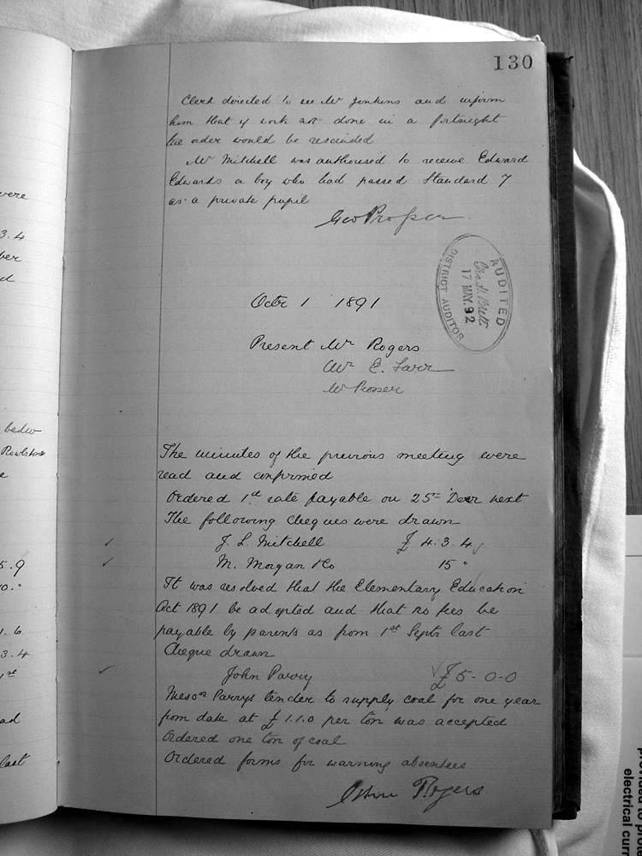 130
Clerk directed to see Mr Jenkins and inform
him that if work not done in a fortnight
the order would be rescinded
Mr Mitchell was authorised to receive Edward
Edwards a boy who had passed Standard 7
as a private pupil
Geo Prosser
AUDITED
17 MAY. 92
DISTRICT AUDITOR
Octr 1 1891
Present Mr Rogers
Mr E. Farr
Mr Prosser
The minutes of the previous meeting were
read and confirmed
Ordered 1d rate payable on 25th Decr next
The following cheques were drawn
J. L. Mitchell £ 4. 3. 4
M. Morgan & Co 15 "
It was resolved that the Elementary Education
Act 1891 be adopted and that no fees be
payable by parents as from 1st Septr last
Cheque drawn
John Parry £5-0-0
Messrs Parrys tender to supply coal for one year
from date at £1.1.0 per ton was accepted
Ordered one ton of coal
Ordered forms for warning absentees
Rogers
were
3.4
below
5.9
1.6
3.4
last
electrical curr